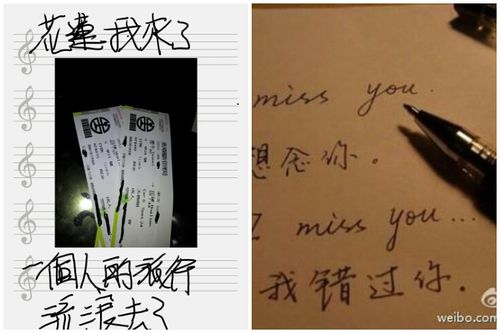 花蓮我來了
一個人的旅行
流浪去了
miss you.
想念你。
I miss you...
我错过你。
weibo.com